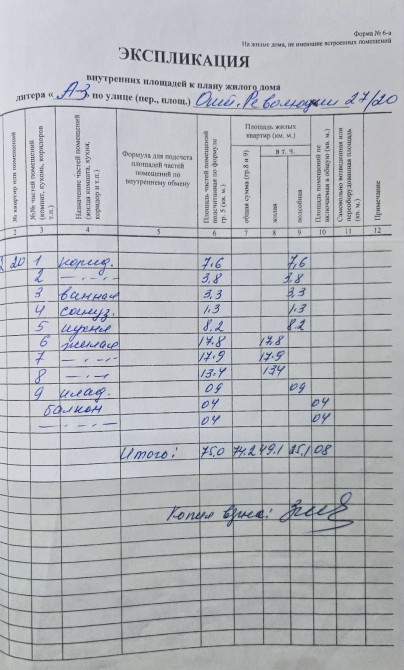 Форма № 6-а
На жилые дома, не имеющие встроенных помещений
ЭКСПЛИКАЦИЯ
внутренних площадей к плану жилого дома
литера « А-3 » по улице (пер., площ.) Ошй. Революции 27/20
№ квартир или помещений
№№ частей помещений (комнат, кухонь, коридоров и т.п.)
Назначение частей помещений (жилая комната, кухня, коридор и т.п.)
Формула для подсчета площадей частей помещений по внутреннему обмеру
Площадь частей помещений подсчитанная по формуле гр. 5 (кв. м.)
Площадь жилых квартир (кв. м.)
общая сумма (гр.8 и 9)
в т. ч.
жилая
подсобная
Площадь помещений не включаемая в общую (кв. м.)
Самовольно возведенная или переоборудованная площадь (кв. м.)
Примечание
2 3 4 5 6 7 8 9 10 11 12
20 1 корид. 7.6 7.6
2 — " — 3.8 3.8
3 ванная 3,3 3,3
4 сануз. 1.3 1.3
5 кухня 8.2 8.2
6 жилая 17.8 17.8
7 — " — 17.9 17.9
8 — " — 13.4 13.4
9 клад. 0.9 0.9
балкон 0.4 0.4
— " — 0.4 0.4
Итого: 75.0 74.2 49.1 25.1 0.8
Копия верна: